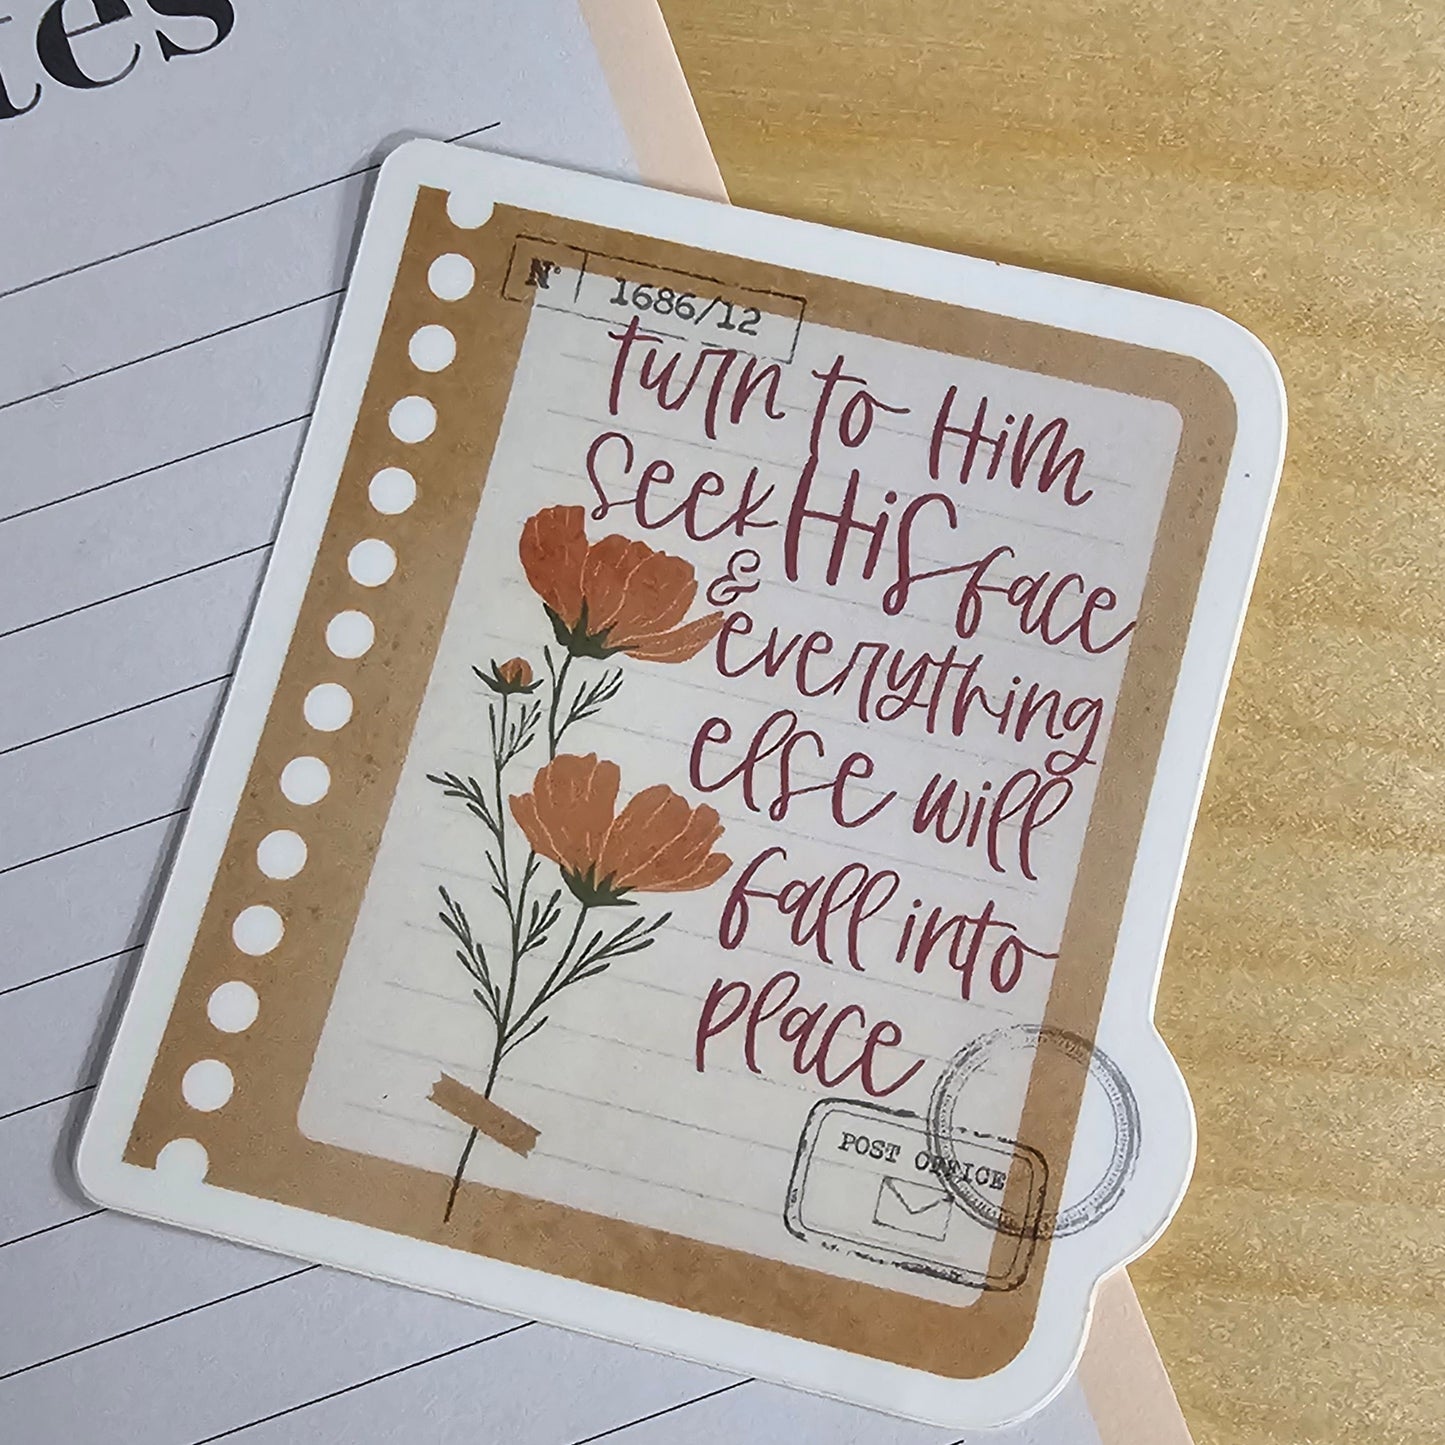 tes
N° 1686/12
turn to Him
seek His face
&
everything
else will
fall into
place
POST OFFICE